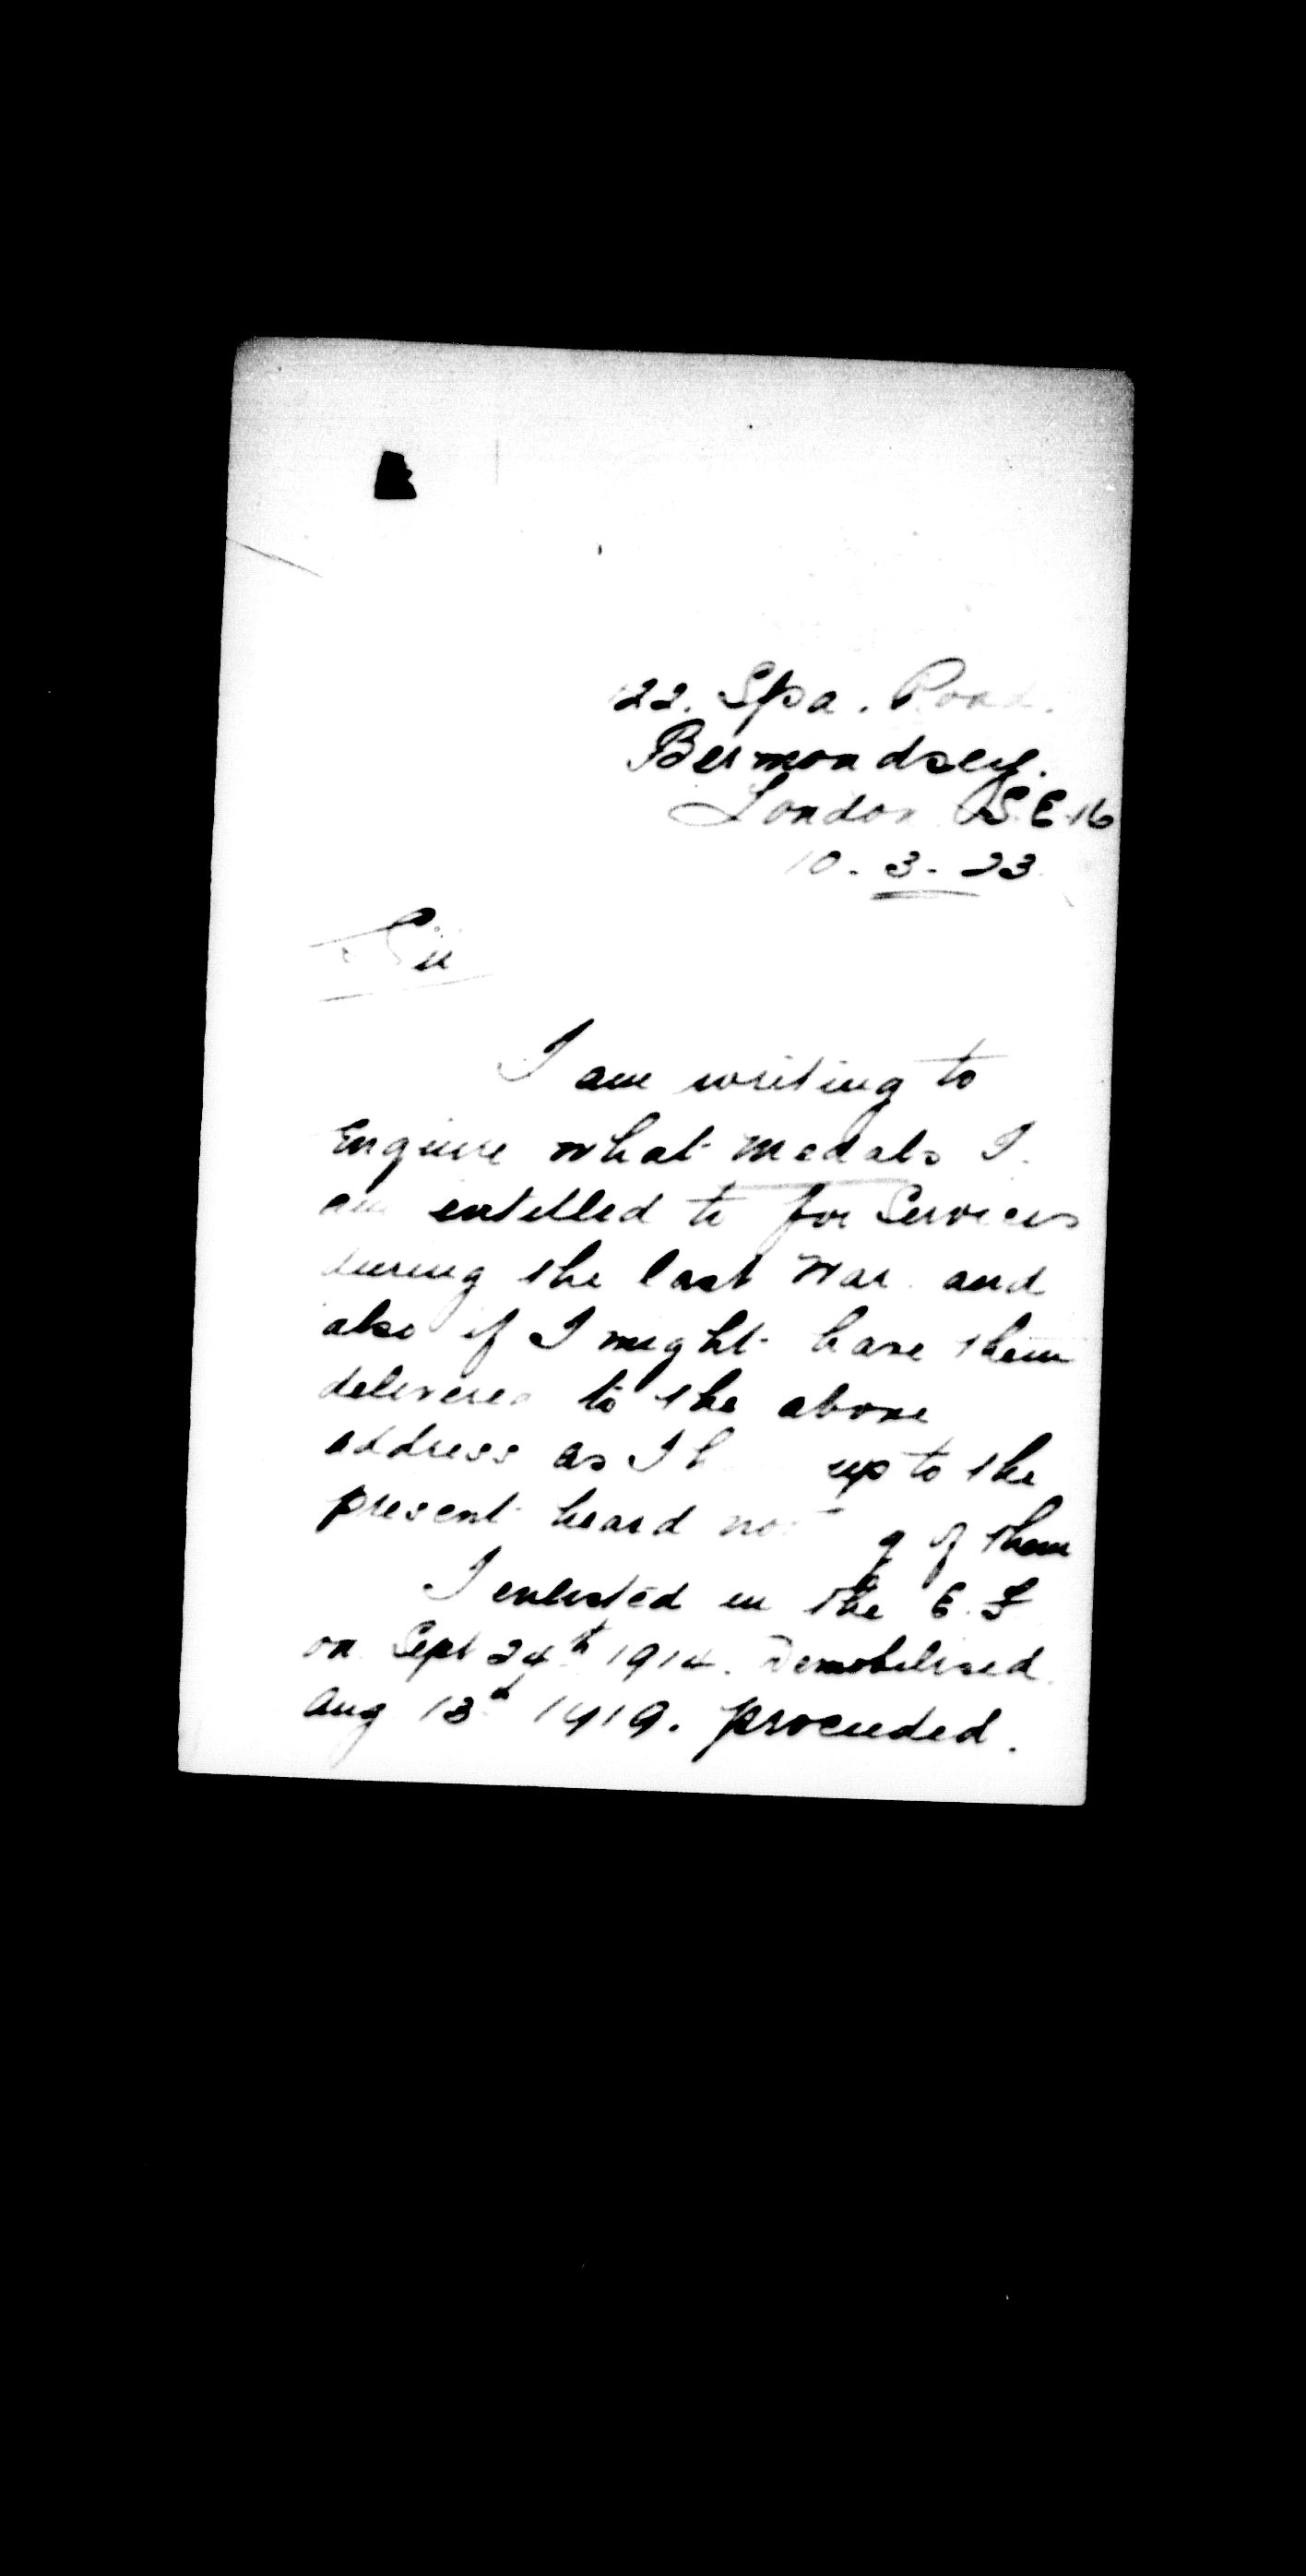 122. Spa. Road.
Bermondsey.
London S.E.16
10.3.23
Sir
I am writing to
Enquire what medals I
am entitled to for Services
during the last War. and
also if I might have them
delivered to the above
address as I up to the
present heard of them
I enlisted in the E.F
on Sept 24th 1914. Demobilised
Aug 13th 1919. proceeded.